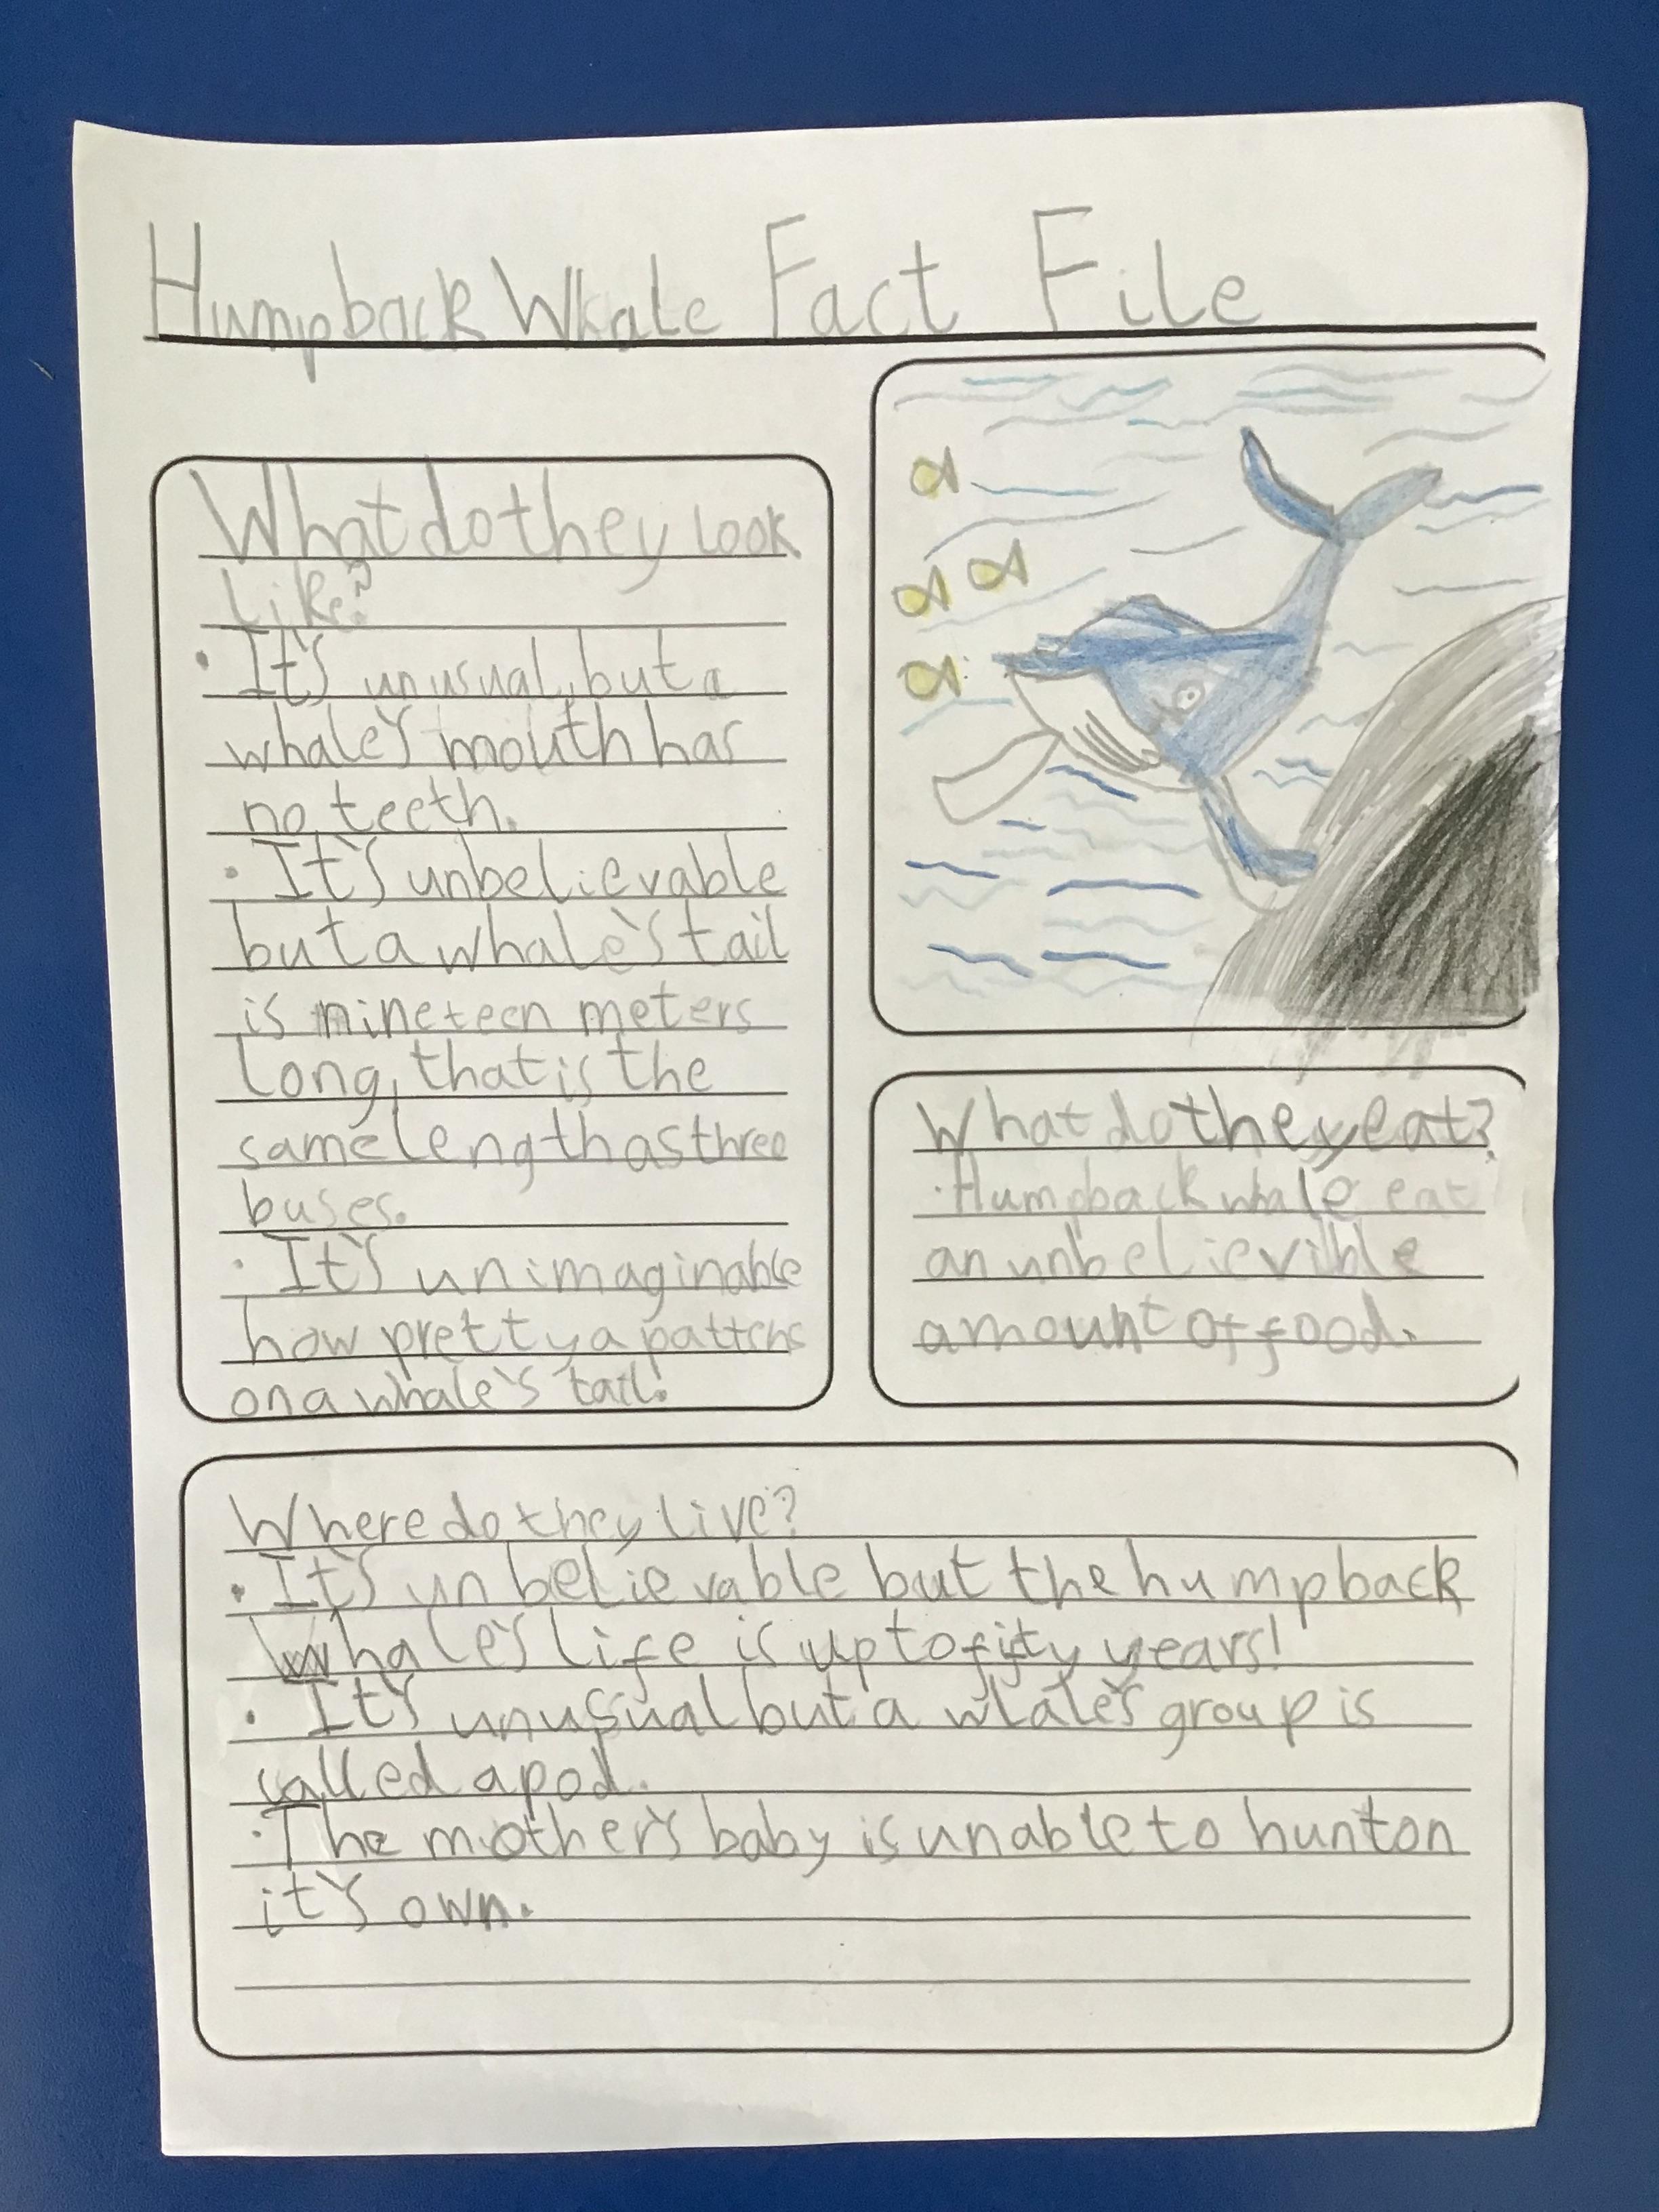 Humpback Whale Fact File
What do they look
like?
• It's unusual, but a
whale's mouth has
no teeth.
• It's unbelievable
but a whale's tail
is nineteen meters
long, that is the
same length as three
buses.
• It's unimaginable
how pretty a patterns
on a whale's tail.
What do they eat?
• Humpback whale eat
an unbelievible
amount of food.
Where do they live?
• It's unbelievable but the humpback
whale's life is up to fifty years!
• It's unusual but a whale's group is
called a pod.
• The mother's baby is unable to hunt on
it's own.